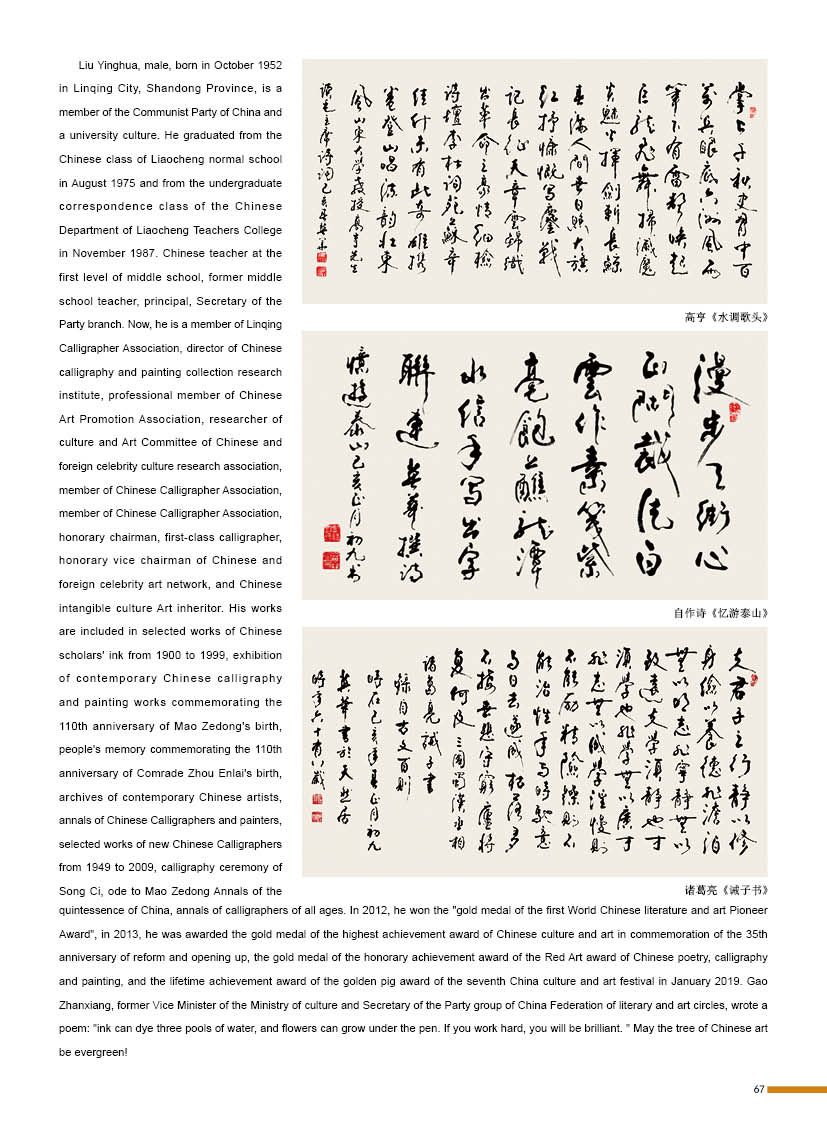 Liu Yinghua, male, born in October 1952
in Linqing City, Shandong Province, is a
member of the Communist Party of China and
a university culture. He graduated from the
Chinese class of Liaocheng normal school
in August 1975 and from the undergraduate
correspondence class of the Chinese
Department of Liaocheng Teachers College
in November 1987. Chinese teacher at the
first level of middle school, former middle
school teacher, principal, Secretary of the
Party branch. Now, he is a member of Linqing
Calligrapher Association, director of Chinese
calligraphy and painting collection research
institute, professional member of Chinese
Art Promotion Association, researcher of
culture and Art Committee of Chinese and
foreign celebrity culture research association,
member of Chinese Calligrapher Association,
member of Chinese Calligrapher Association,
honorary chairman, first-class calligrapher,
honorary vice chairman of Chinese and
foreign celebrity art network, and Chinese
intangible culture Art inheritor. His works
are included in selected works of Chinese
scholars' ink from 1900 to 1999, exhibition
of contemporary Chinese calligraphy
and painting works commemorating the
110th anniversary of Mao Zedong's birth,
people's memory commemorating the 110th
anniversary of Comrade Zhou Enlai's birth,
archives of contemporary Chinese artists,
annals of Chinese Calligraphers and painters,
selected works of new Chinese Calligraphers
from 1949 to 2009, calligraphy ceremony of
Song Ci, ode to Mao Zedong Annals of the
quintessence of China, annals of calligraphers of all ages. In 2012, he won the "gold medal of the first World Chinese literature and art Pioneer
Award", in 2013, he was awarded the gold medal of the highest achievement award of Chinese culture and art in commemoration of the 35th
anniversary of reform and opening up, the gold medal of the honorary achievement award of the Red Art award of Chinese poetry, calligraphy
and painting, and the lifetime achievement award of the golden pig award of the seventh China culture and art festival in January 2019. Gao
Zhanxiang, former Vice Minister of the Ministry of culture and Secretary of the Party group of China Federation of literary and art circles, wrote a
poem: "ink can dye three pools of water, and flowers can grow under the pen. If you work hard, you will be brilliant. " May the tree of Chinese art
be evergreen!
掌上千秋史胸中百
萬兵眼底六洲風雨
筆下有雷聲喚起
巨龍飛舞掃滅魔
炎魅火揮劍斬長鯨
春滿人間世日照大旗
紅抒慷慨寫鏖戰
記長征天章雲錦織
出革命之豪情細檢
詩壇李杜詞苑蘇辛
佳什未有此奇雄攜
卷登山唱流韻壯東
風山東大學教授高亨先生
讀毛主席詩詞己亥年英華
高亨《水调歌头》
漫步天街心
雲作素箋紫
毫飽蘸龍潭
水信手寫出字
聯連英華撰詩
憶遊泰山己亥正月初九书
自作诗《忆游泰山》
夫君子之行靜以修
身儉以養德非澹泊
無以明志非寧靜無以
致遠夫學須靜也才
須學也非學無以廣才
非志無以成學淫慢則
不能勵精險躁則不
能治性年與時馳意
與日去遂成枯落多
不接世悲守窮廬將
復何及三國蜀漢丞相
諸葛亮誡子書
錄自古文百則
時在己亥年春正月初九
英華書於天然居
時年六十有八歲
诸葛亮《诫子书》
67